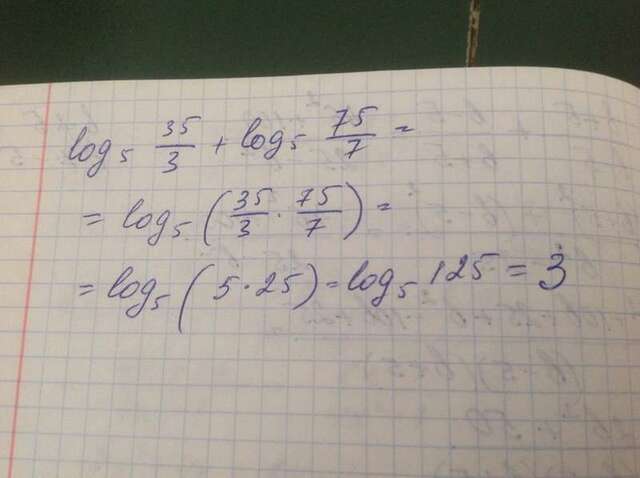 log₅ 35/3 + log₅ 75/7 =
= log₅ (35/3 · 75/7) =
= log₅ (5 · 25) = log₅ 125 = 3